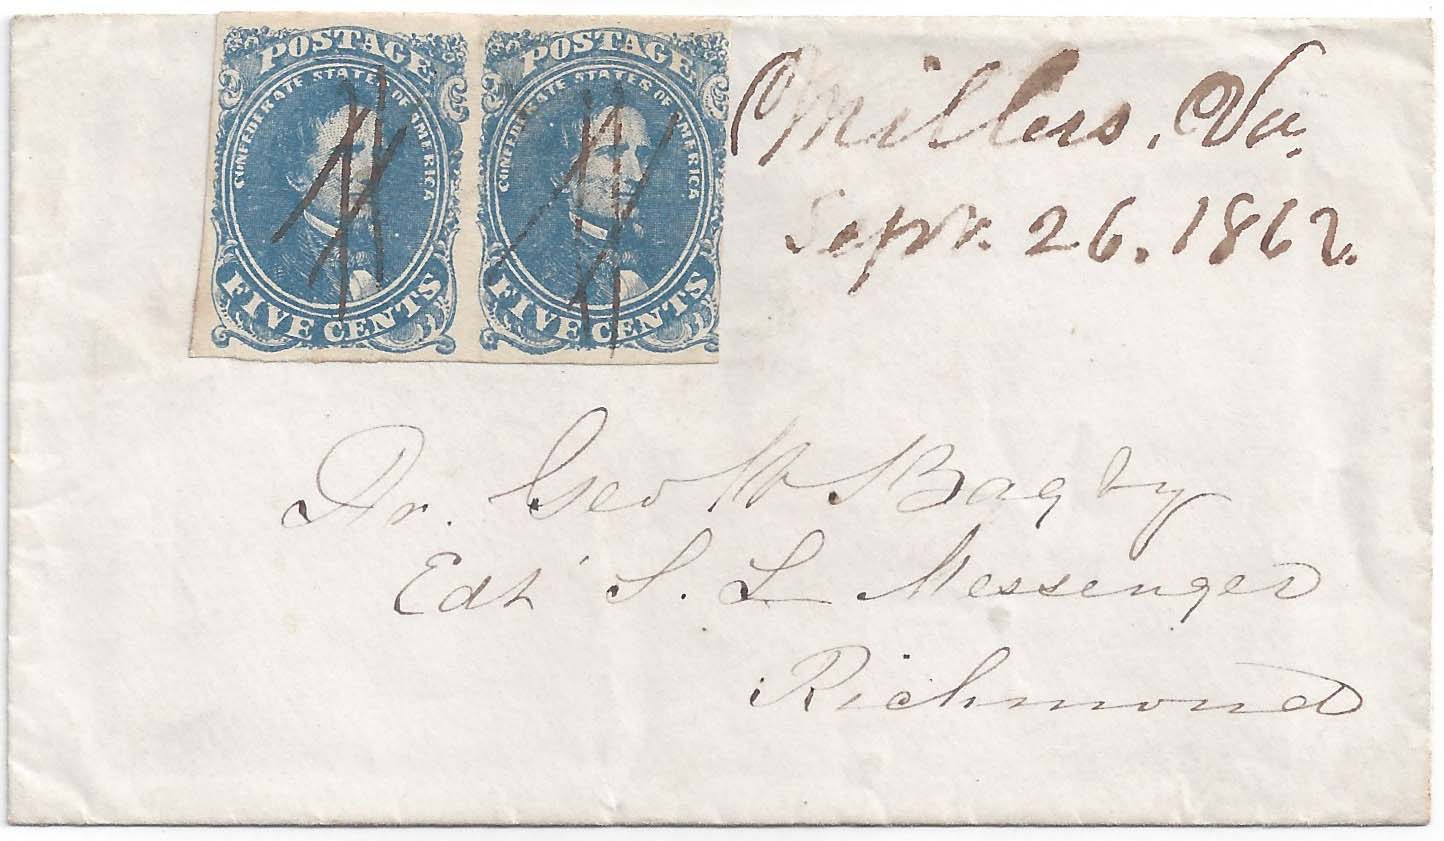 POSTAGE
CONFEDERATE STATES OF AMERICA
FIVE CENTS
POSTAGE
CONFEDERATE STATES OF AMERICA
FIVE CENTS
Millers, Va.
Sept. 26. 1862.
Dr. Geo W Bagby
Edt' S. L Messenger
Richmond